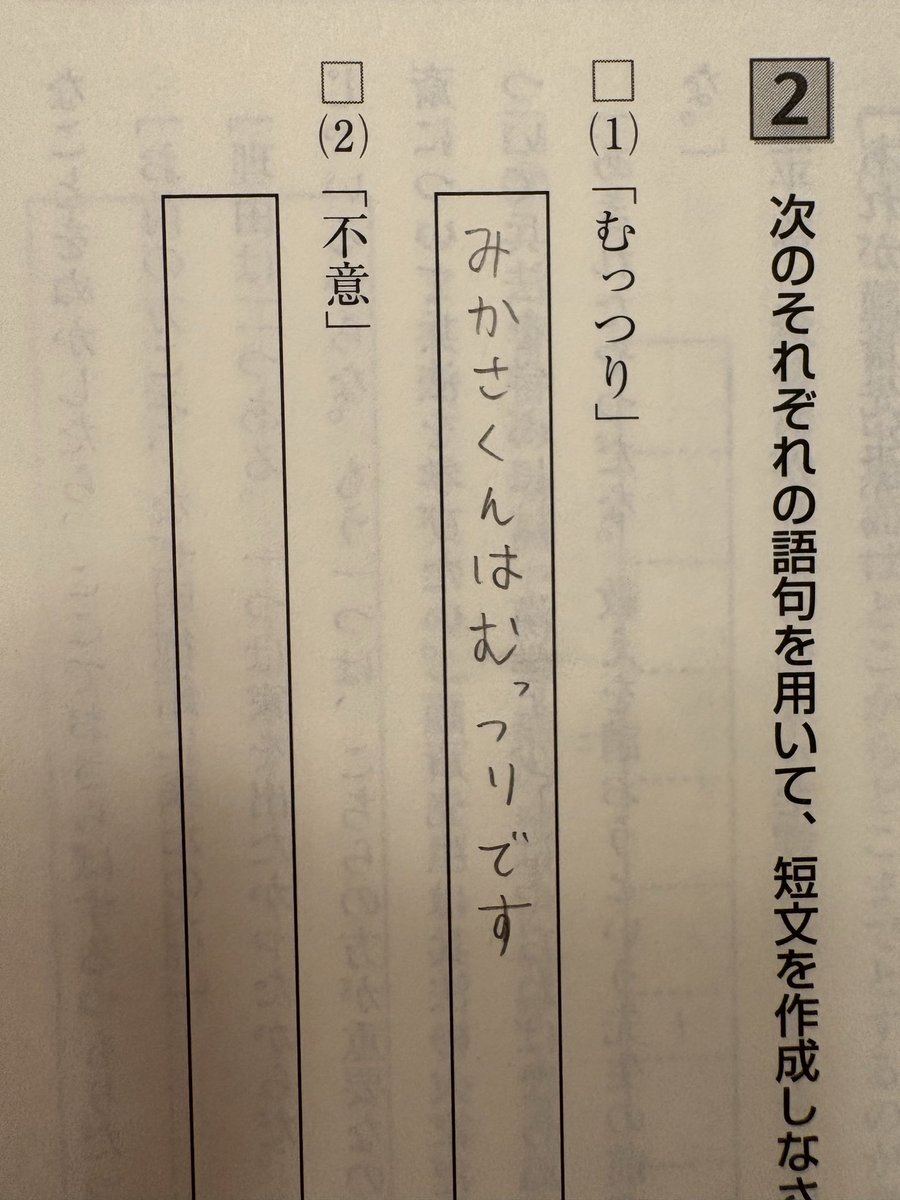 2 次のそれぞれの語句を用いて、短文を作成しなさ
□(1)「むっつり」
みかさくんはむっつりです
□(2)「不意」